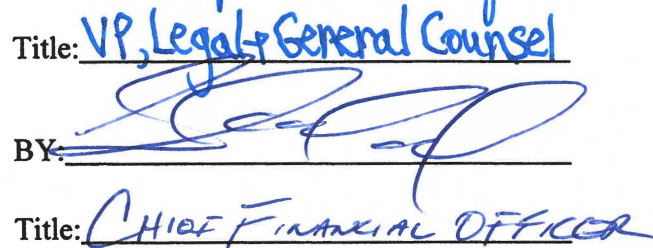 Title: VP, Legal + General Counsel
BY:
Title: CHIEF FINANCIAL OFFICER